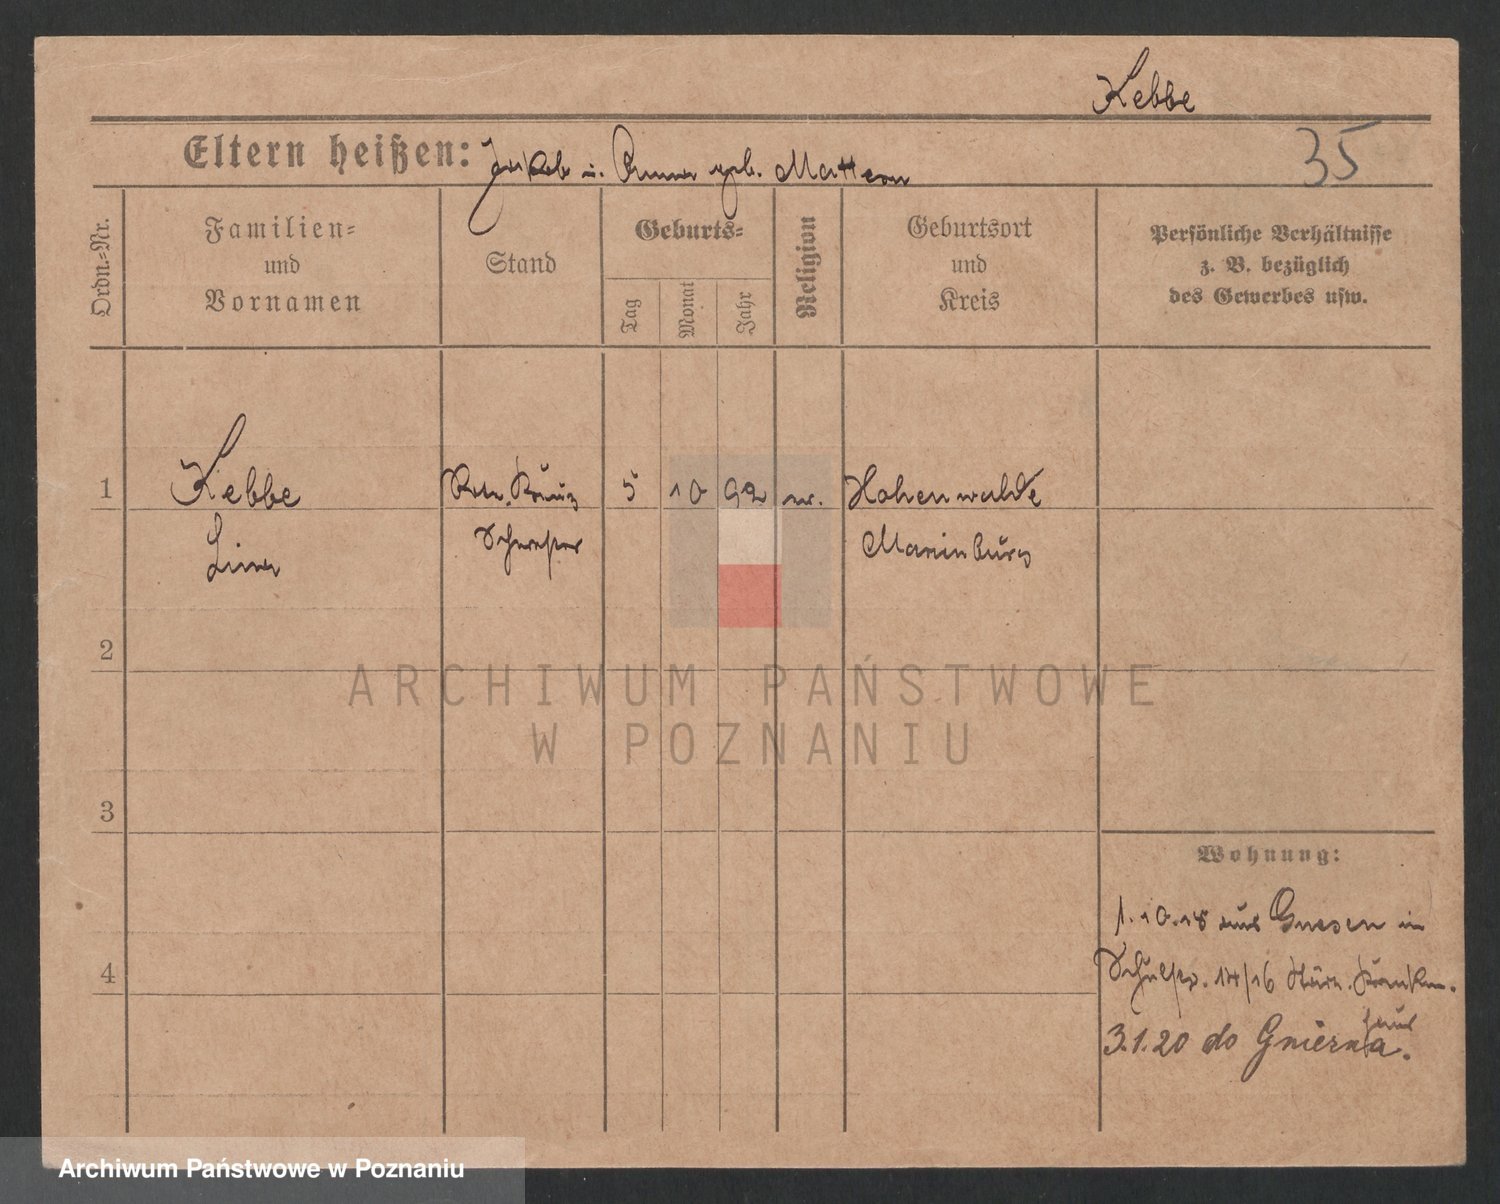 Kebbe
Eltern heißen: Jakob u. Anna geb. Mattern
35
Ordn.-Nr.
Familien-
und
Vornamen
Stand
Geburts-
Tag
Monat
Jahr
Religion
Geburtsort
und
Kreis
Persönliche Verhältnisse
z. B. bezüglich
des Gewerbes usw.
1
Kebbe
Kreuz
5
10
92
Hohenwalde
Lina
Schwester
Marienburg
2
ARCHIWUM PAŃSTWOWE
W POZNANIU
3
Wohnung:
1.10.18 aus Gnesen in
4
Schulstr. 14/16 Krankn.
haus
3.1.20 do Gniezna.
Archiwum Państwowe w Poznaniu